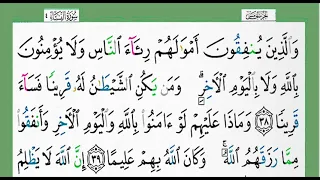 سورة النساء ٤
وَٱلَّذِينَ يُنفِقُونَ أَمْوَٰلَهُمْ رِئَآءَ ٱلنَّاسِ وَلَا يُؤْمِنُونَ
بِٱللَّهِ وَلَا بِٱلْيَوْمِ ٱلْـَٔاخِرِ ۗ وَمَن يَكُنِ ٱلشَّيْطَـٰنُ لَهُۥ قَرِينًا فَسَآءَ
قَرِينًا ٣٨ وَمَاذَا عَلَيْهِمْ لَوْ ءَامَنُوا۟ بِٱللَّهِ وَٱلْيَوْمِ ٱلْـَٔاخِرِ وَأَنفَقُوا۟
مِمَّا رَزَقَهُمُ ٱللَّهُ ۚ وَكَانَ ٱللَّهُ بِهِمْ عَلِيمًا ٣٩ إِنَّ ٱللَّهَ لَا يَظْلِمُ